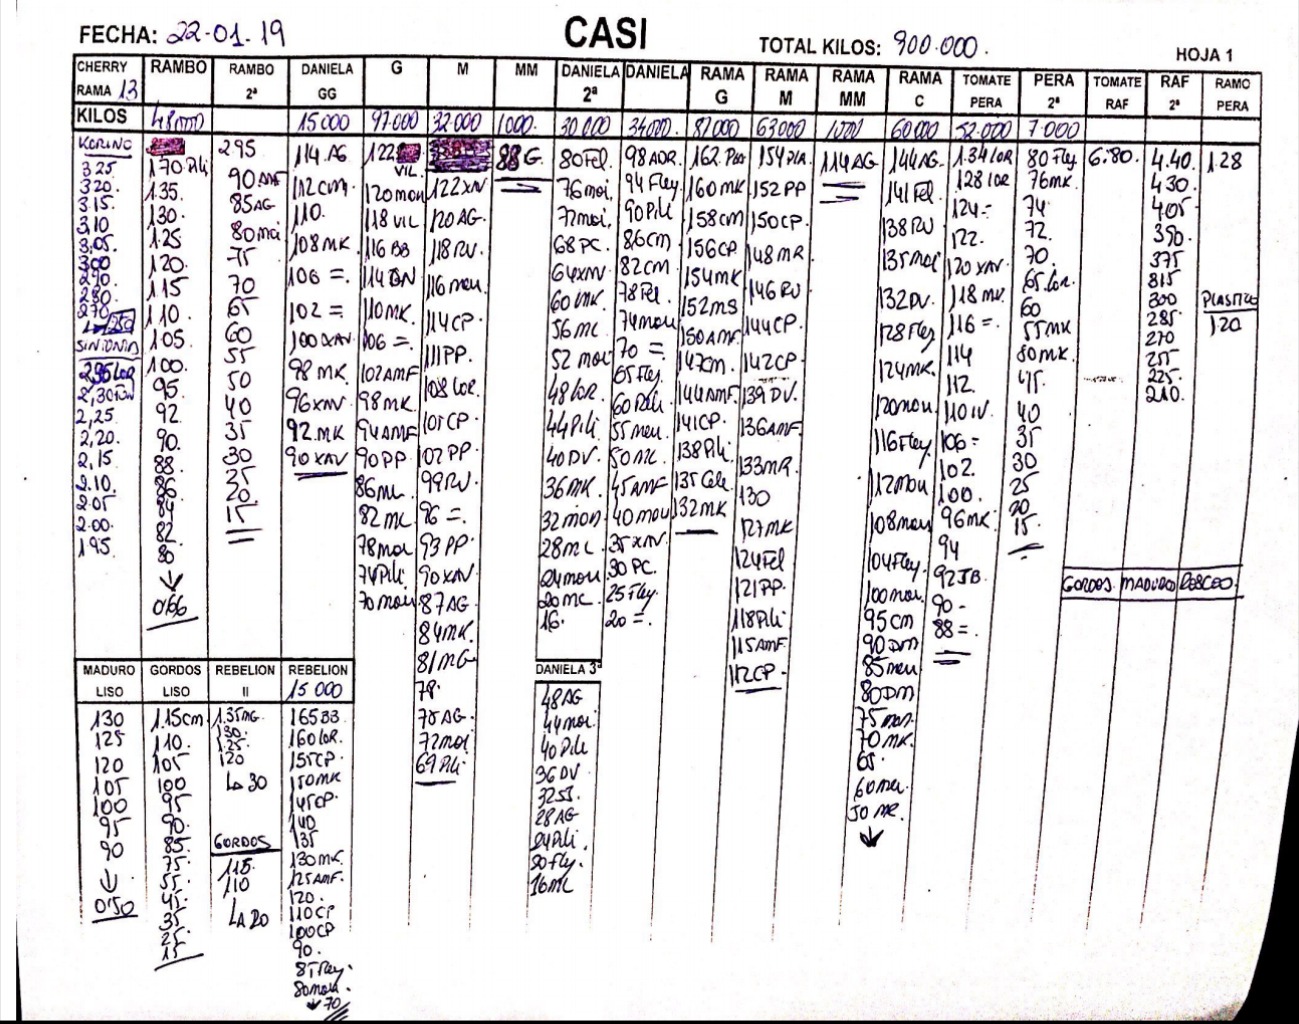 FECHA: 22-01-19
CASI
TOTAL KILOS: 900.000.
HOJA 1
CHERRY RAMA 13
RAMBO
RAMBO 2ª
DANIELA GG
G
M
MM
DANIELA 2ª
DANIELA
RAMA G
RAMA M
RAMA MM
RAMA C
TOMATE PERA
PERA 2ª
TOMATE RAF
RAF 2ª
RAMO PERA
KILOS
48000
15000
97.000
32.000
1000.
30.000
34000.
87000
63000
1000
60000
52.000
7.000
KORINO
325
320.
315.
310
3,05.
300
290.
280.
270
250
SIN ONIA
295 LOR
2,30
2,25
2,20.
2,15
2.10.
2.05
2.00.
1.95.
170 Pili
135.
130
125
120
115
110
105.
100.
95.
92
90.
88
86
84
82
80
0'66
295
90 AMF
85AG
80 moi
75
70
65
60
55
50
40
35
30
25
20
15
114 AG
112cm
110.
108 MK
106 =.
102 =
100 XAV
98 MK
96 XAV
92.MK
90 XAV
122
VIL.
120 mou
118 VIL
116 BB
114 BN
110MK
106 =.
102AMF
98 MK
94AMF
90PP
86mc
82 mc
78mou
74Pili
70 mou
122XAV
120 AG.
118 RV.
116 mou.
114CP
111PP.
108 LOR.
105CP
102PP.
99RV
96 =.
93 PP
90 XAV
87AG
84MK.
81MG
78.
75 AG.
72moi
69 Pili
88G.
80 Fel
76moi
72moi
68 PC.
64XAV
60 MK
56 mc
52 mou
48 LOR.
44 Pili
40 DV.
36MK.
32 mou
28 mc
24mou
20 mc.
16.
98 ADR.
94 Fley
90 Pili
86cm
82cm
78Fel.
74mou
70 =.
65 Fley
60 Pili
55 mou
50 mc.
45AMF
40 mou
35 XAV
30 PC.
25 Fley.
20 =.
162.
160MK
158cm
156CP
154MK
152MS
150AMF
147cm.
144AMF
141CP.
138 Pili
135
132MK
154
152 PP
150CP.
148 MR
146 RV
144CP.
142CP
139 DV.
136AMF
133MR.
130
127MK
124 Fel
121PP.
118 Pili
115AMF.
112CP.
114AG
144AG.
141 Fel
138 RV
135 moi
132 DV.
128 Fley
124MK.
120 mou
116 Fley
112mou
108mou
104Fley.
100 mou
95cm
90 DM
85 mou
80 DM
75 mou
70 MK.
65.
60 mou.
50 MR.
134 LOR
128 LOR
124 =
122.
120 XAV
118 MV
116 =.
114
112.
110 IV.
106 =
102.
100.
96MK.
94
92JB.
90 -
88 =.
80 Fley
76MK.
74
72.
70.
65. LOR.
60
55 MK
50MK.
45.
40
35
30
25
20
15.
6.80.
4.40.
4.30.
4.05
390.
375
315
300
285
270
255
225.
210.
1.28
PLASTICO
1.20
GORDOS MADURO
MADURO LISO
130
125
120
105
100
95
90
0'50
GORDOS LISO
1.15cm
110.
105
100
95
90.
85
75
55
45
35
25
15
REBELION II
1.35MG.
130.
1.25.
120
LA 30
GORDOS
115
110
LA 20
REBELION 15 000
165BB
160 LOR.
155CP
150MK
145CP.
140
135
130MK.
125AMF.
120.
110CP
100CP
90.
85 Fley.
80mou.
70
DANIELA 3ª
48 AG
44 moi
40 Pili
36 DV.
32
28 AG
24Pili
20 Fly.
16mc